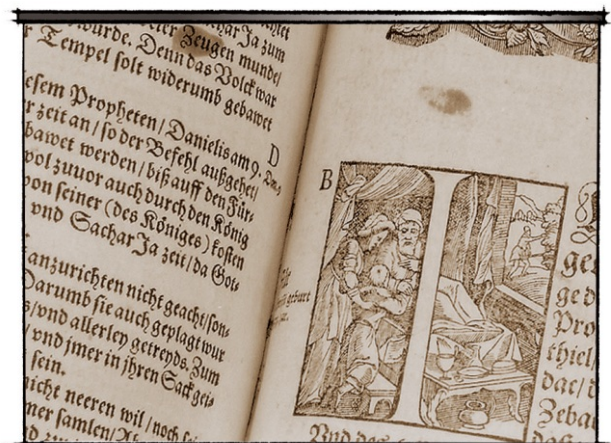 wurde. Denn das Volck war
Tempel solt widerumb gebawet
Propheten / Danielis am 9.
zeit an / so der Befehl außgehet /
bawet werden / biß auff den Für-
wol zuuor auch durch den König
von seiner (des Königes) kosten
vnd Sachar Ja zeit / da Got-
anzurichten nicht geacht / son-
Darumb sie auch geplagt wur
/ vnd allerley getreyds. Zum
/ vnd jmer in jhren Sack gei-
sein.
nicht neeren wil / noch
samlen /
D
B
geburt
Vnd das
ge
ge d
Pro
thiel
dac /
Zeba